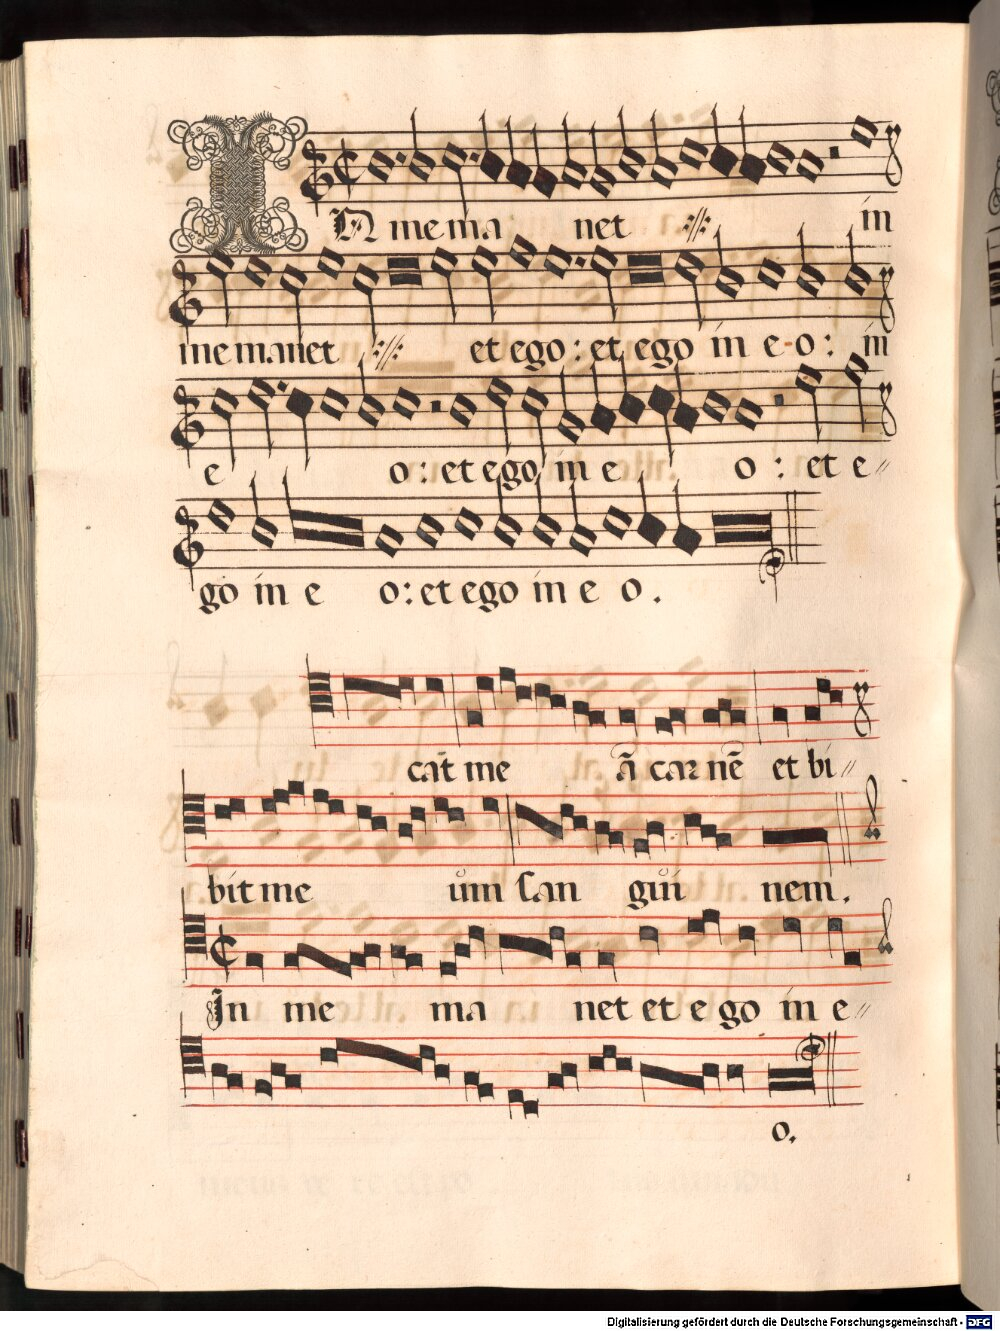 IN me ma net in
me manet et ego : et ego in e o : in
e o : et ego in e o : et e
go in e o : et ego in e o .
cat me ā car nē et bi
bit me um San gui nem .
In me ma net et e go in e
o .
Digitalisierung gefördert durch die Deutsche Forschungsgemeinschaft - DFG